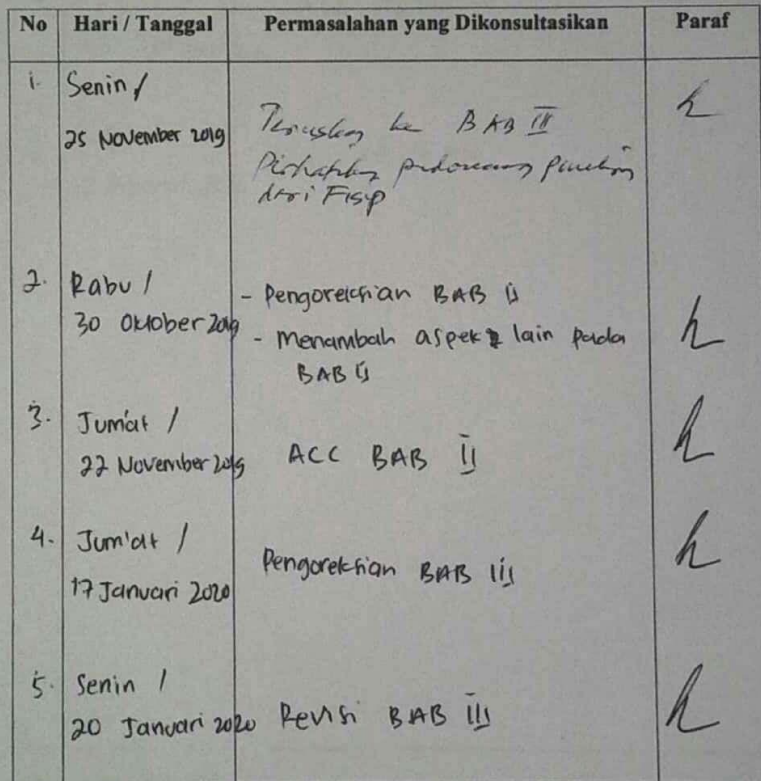 No Hari / Tanggal Permasalahan yang Dikonsultasikan Paraf
1. Senin /
25 November 2019
Teruskan ke BAB III
dari Fisip
2. Rabu /
30 Oktober 2019
- Pengoreksian BAB II
- Menambah aspek2 lain pada
BAB II
3. Jum'at /
22 November 2019 ACC BAB II
4. Jum'at /
17 Januari 2020
Pengoreksian BAB III
5. Senin /
20 Januari 2020 Revisi BAB III